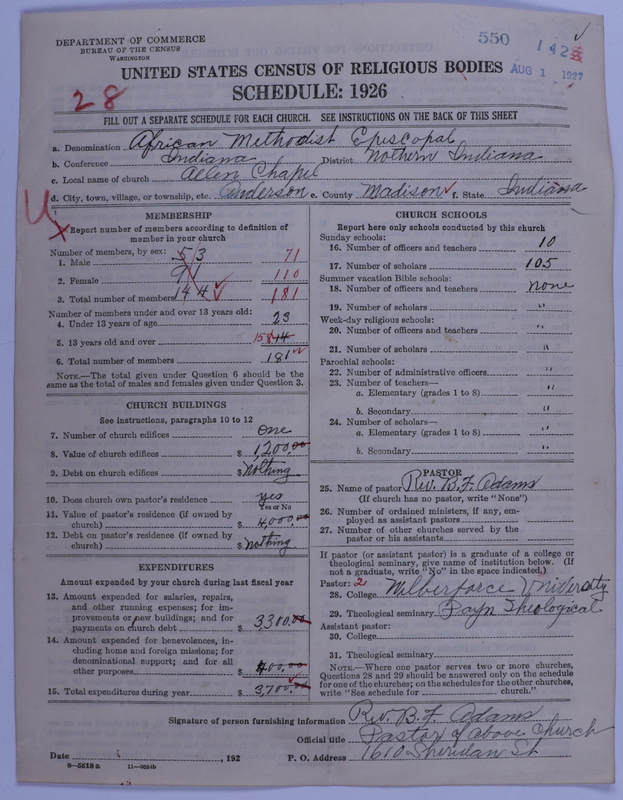 DEPARTMENT OF COMMERCE
BUREAU OF THE CENSUS
WASHINGTON
550
142
AUG 1 1927
UNITED STATES CENSUS OF RELIGIOUS BODIES
SCHEDULE: 1926
28
FILL OUT A SEPARATE SCHEDULE FOR EACH CHURCH. SEE INSTRUCTIONS ON THE BACK OF THIS SHEET
a. Denomination African Methodist Episcopal
b. Conference Indiana District Nothern Indiana
c. Local name of church Allen Chapel
d. City, town, village, or township, etc. Anderson e. County Madison f. State Indiana
MEMBERSHIP
Report number of members according to definition of
member in your church
Number of members, by sex:
1. Male 53 71
2. Female 91 110
3. Total number of members 144 181
Number of members under and over 13 years old:
4. Under 13 years of age 23
5. 13 years old and over 158 14
6. Total number of members 181
NOTE.—The total given under Question 6 should be the
same as the total of males and females given under Question 3.
CHURCH BUILDINGS
See instructions, paragraphs 10 to 12
7. Number of church edifices one
8. Value of church edifices $ 1,200.00
9. Debt on church edifices $ Nothing
10. Does church own pastor's residence yes
Yes or No
11. Value of pastor's residence (if owned by
church) $ 4,000.00
12. Debt on pastor's residence (if owned by
church) $ nothing
EXPENDITURES
Amount expended by your church during last fiscal year
13. Amount expended for salaries, repairs,
and other running expenses; for im-
provements or new buildings; and for
payments on church debt $ 3,300.00
14. Amount expended for benevolences, in-
cluding home and foreign missions; for
denominational support; and for all
other purposes $ 400.00
15. Total expenditures during year $ 3,700.00
CHURCH SCHOOLS
Report here only schools conducted by this church
Sunday schools:
16. Number of officers and teachers 10
17. Number of scholars 105
Summer vacation Bible schools:
18. Number of officers and teachers none
19. Number of scholars "
Week-day religious schools:
20. Number of officers and teachers "
21. Number of scholars "
Parochial schools:
22. Number of administrative officers "
23. Number of teachers—
a. Elementary (grades 1 to 8) "
b. Secondary "
24. Number of scholars—
a. Elementary (grades 1 to 8) "
b. Secondary "
PASTOR
25. Name of pastor Rev. B. F. Adams
(If church has no pastor, write "None")
26. Number of ordained ministers, if any, em-
ployed as assistant pastors
27. Number of other churches served by the
pastor or his assistants
If pastor (or assistant pastor) is a graduate of a college or
theological seminary, give name of institution below. (If
not a graduate, write "No" in the space indicated.)
Pastor: 2
28. College Wilberforce University
29. Theological seminary Payn Theological
Assistant pastor:
30. College
31. Theological seminary
NOTE.—Where one pastor serves two or more churches,
Questions 28 and 29 should be answered only on the schedule
for one of the churches; on the schedules for the other churches,
write "See schedule for church."
Signature of person furnishing information Rev. B. F. Adams
Official title Pastor of above Church
Date , 192 P. O. Address 1610 Sheridan St